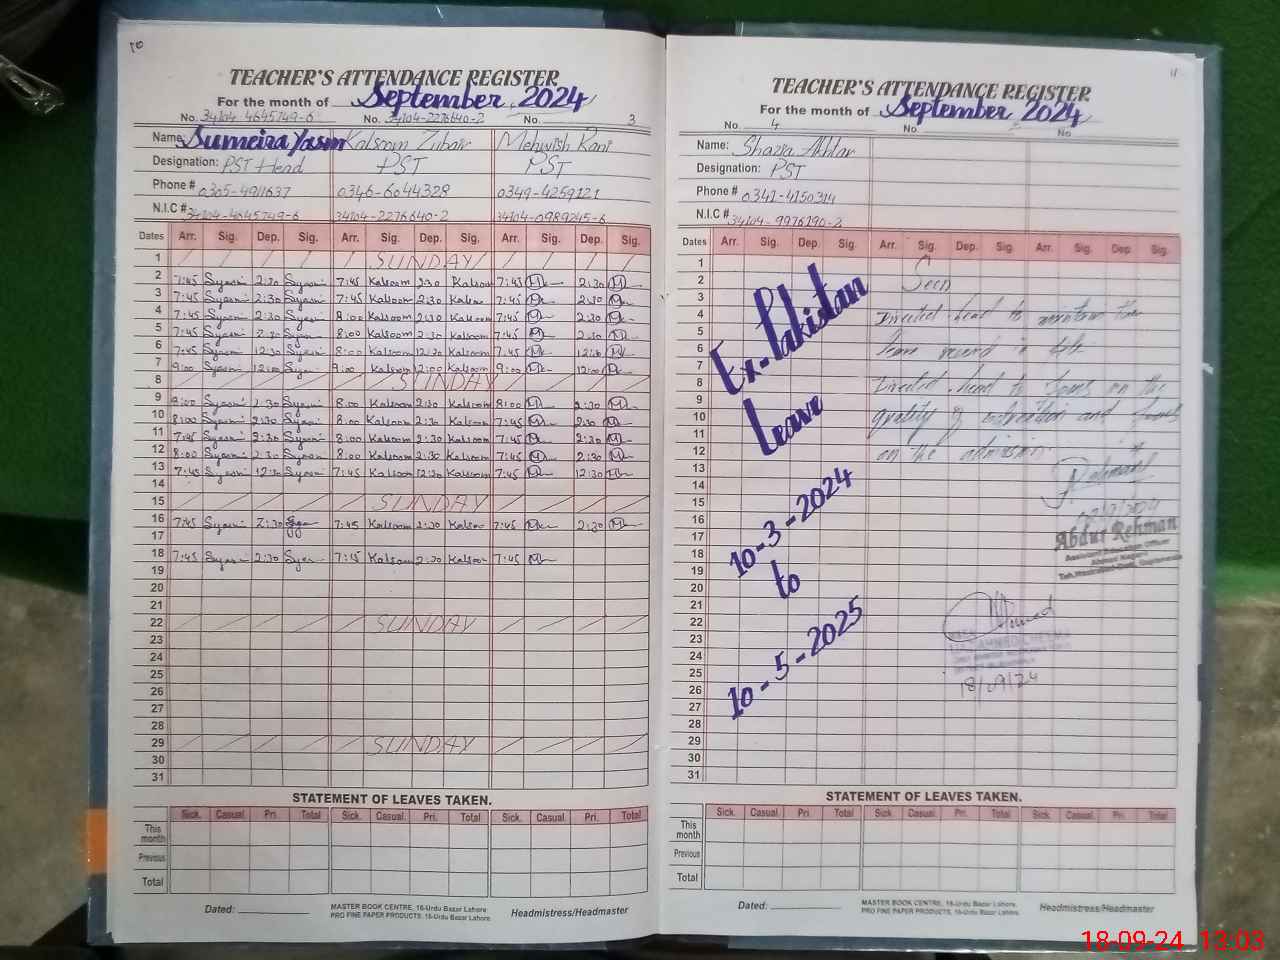 10
TEACHER'S ATTENDANCE REGISTER
For the month of September 2024
No. 34104 4645749-6 No. 34104-2276640-2 No. 3
Name: Sumeira Yasin Kalsoom Zubair Mehwish Rani
Designation: PST Head PST PST
Phone # 0305-4911637 0346-6044328 0349-4259121
N.I.C # 34104-4645749-6 34104-2276640-2 34104-0989245-6
Dates Arr. Sig. Dep. Sig. Arr. Sig. Dep. Sig. Arr. Sig. Dep. Sig.
1 SUNDAY
2 7:45 2:30 7:45 Kalsoom 2:30 Kalsoom 7:45 2:30
3 7:45 2:30 7:45 Kalsoom 2:30 7:45 2:30
4 7:45 2:30 8:00 Kalsoom 2:30 Kalsoom 7:45 2:30
5 7:45 2:30 8:00 Kalsoom 2:30 Kalsoom 7:45 2:30
6 7:45 12:30 8:00 Kalsoom 12:30 Kalsoom 7:45 12:30
7 9:00 12:00 9:00 Kalsoom 12:00 Kalsoom 9:00 12:00
8 SUNDAY
9 8:00 2:30 8:00 Kalsoom 2:30 Kalsoom 8:00 2:30
10 8:00 2:30 8:00 Kalsoom 2:30 Kalsoom 7:45 2:30
11 7:45 2:30 8:00 Kalsoom 2:30 Kalsoom 7:45 2:30
12 8:00 2:30 8:00 Kalsoom 2:30 Kalsoom 7:45 2:30
13 7:45 12:30 7:45 Kalsoom 12:30 Kalsoom 7:45 12:30
14
15 SUNDAY
16 7:45 2:30 7:45 Kalsoom 2:30 7:45 2:30
17
18 7:45 2:30 7:45 Kalsoom 2:30 Kalsoom 7:45
19
20
21
22 SUNDAY
23
24
25
26
27
28
29 SUNDAY
30
31
STATEMENT OF LEAVES TAKEN.
Sick. Casual. Pri. Total Sick. Casual. Pri. Total Sick. Casual. Pri. Total
This month
Previous
Total
Dated:
MASTER BOOK CENTRE, 16-Urdu Bazar Lahore
PRO FINE PAPER PRODUCTS, 16-Urdu Bazar Lahore
Headmistress/Headmaster
11
TEACHER'S ATTENDANCE REGISTER
For the month of September 2024
No. 4 No. No
Name: Shazia Akhtar
Designation: PST
Phone # 0341-4150314
N.I.C # 34104-9976190-2
Dates Arr. Sig. Dep. Sig. Arr. Sig. Dep. Sig. Arr. Sig. Dep. Sig.
1
2
3
4
5
6
7
8
9
10
11
12
13
14
15
16
17
18
19
20
21
22
23
24
25
26
27
28
29
30
31
Ex-Pakistan
Leave
10-3-2024
to
10-5-2025
Seen
Directed head to maintain the
Directed head to focus on the
quality of and focus
on the admission
Abdur Rehman
Assistant Education Officer
18/09/24
STATEMENT OF LEAVES TAKEN.
Sick. Casual. Pri. Total Sick. Casual. Pri. Total Sick. Casual. Pri. Total
This month
Previous
Total
Dated:
MASTER BOOK CENTRE, 16-Urdu Bazar Lahore.
PRO FINE PAPER PRODUCTS, 16-Urdu Bazar Lahore.
Headmistress/Headmaster
18-09-24 13:03